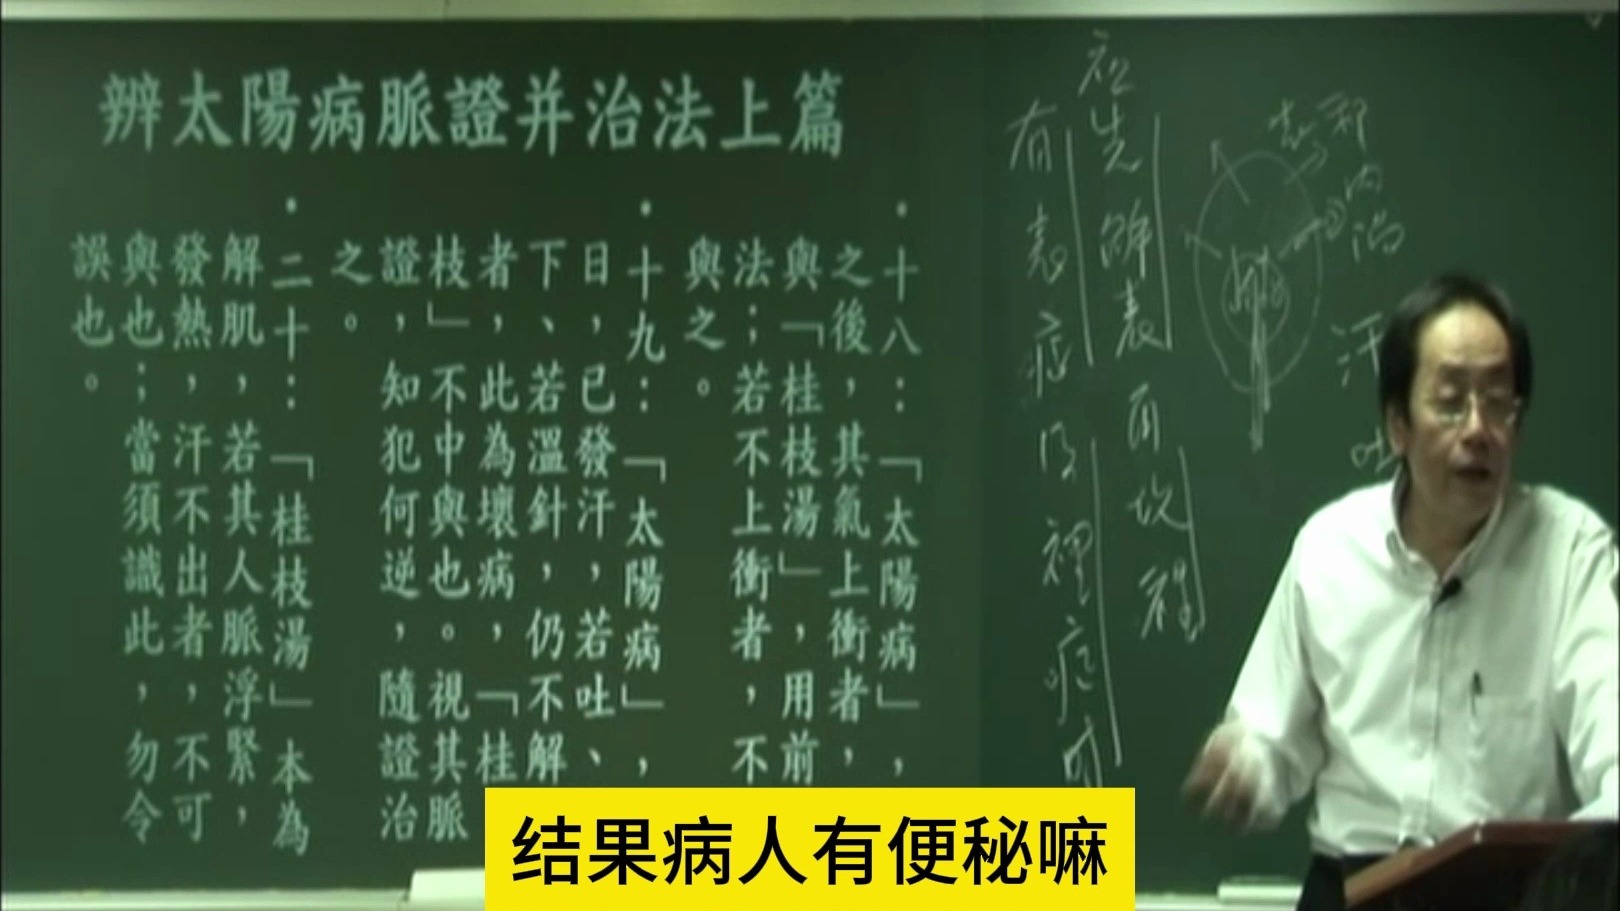 辨太陽病脈證并治法上篇
・十八：「太陽病」，
之後，其氣上衝者，
與「桂枝湯」，用前
法；若不上衝者，不
與之。
・十九：「太陽病」，
日，已發汗，若吐、
下、若溫針，仍不解
者，此為壞病，「桂
枝」不中與也。視其脈
證，知犯何逆，隨證治
之。
・二十：「桂枝湯」本為
解肌，若其人脈浮緊，
發熱，汗不出者，不可
與也；當須識此，勿令
誤也。
表邪
內陷
汗
吐
先解表再攻裡
有表症及裡症時
结果病人有便秘嘛